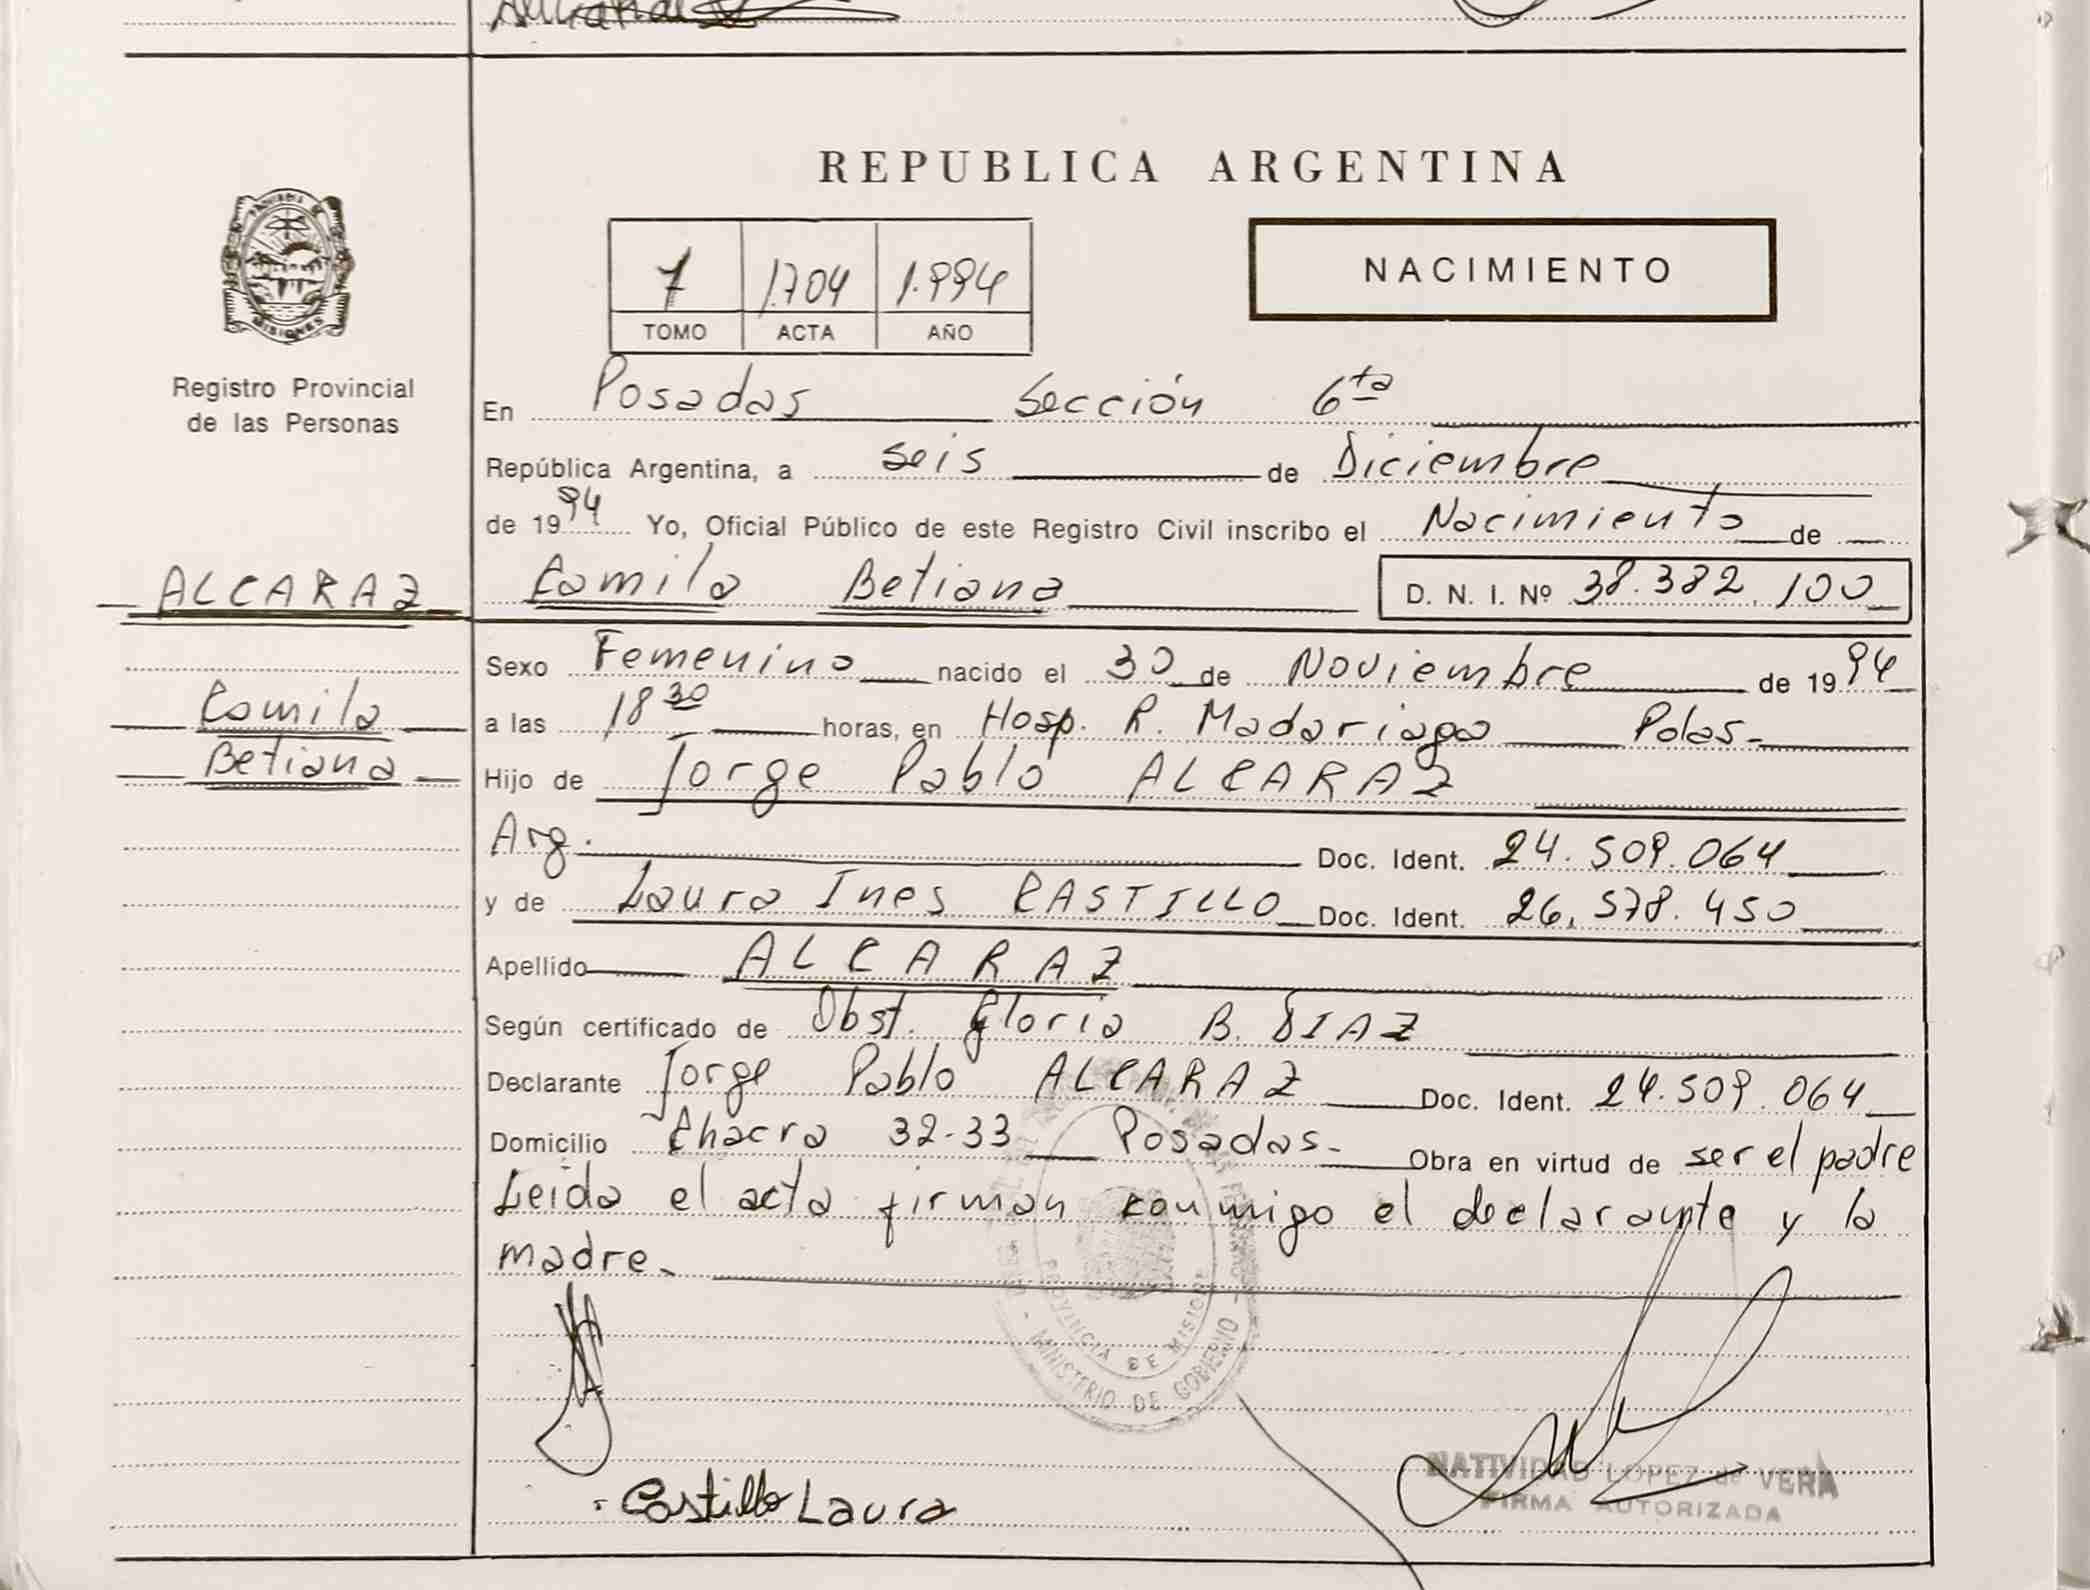 REPUBLICA ARGENTINA
PROVINCIA DE MISIONES
Registro Provincial
de las Personas
7 1.704 1.994
TOMO ACTA AÑO
NACIMIENTO
En Posadas Sección 6ta
República Argentina, a seis de Diciembre
de 1994 Yo, Oficial Público de este Registro Civil inscribo el Nacimiento de
ALCARAZ
Camila Betiana D. N. I. Nº 38.382.100
Camila
Betiana
Sexo Femenino nacido el 30 de Noviembre de 1994
a las 18 30 horas, en Hosp. R. Madariaga Pdas-
Hijo de Jorge Pablo ALCARAZ
Arg. Doc. Ident. 24.509.064
y de Laura Ines CASTILLO Doc. Ident. 26.578.450
Apellido ALCARAZ
Según certificado de Obst. Gloria B. DIAZ
Declarante Jorge Pablo ALCARAZ Doc. Ident. 24.509.064
Domicilio Chacra 32-33 Posadas- Obra en virtud de ser el padre
Leida el acta firman conmigo el declarante y la
madre.
PROVINCIA DE MISIONES
MINISTERIO DE GOBIERNO
Castillo Laura
NATIVIDAD LOPEZ de VERA
FIRMA AUTORIZADA